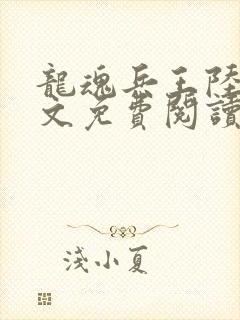 龍魂兵王陸
文免費閱讀
淺小夏